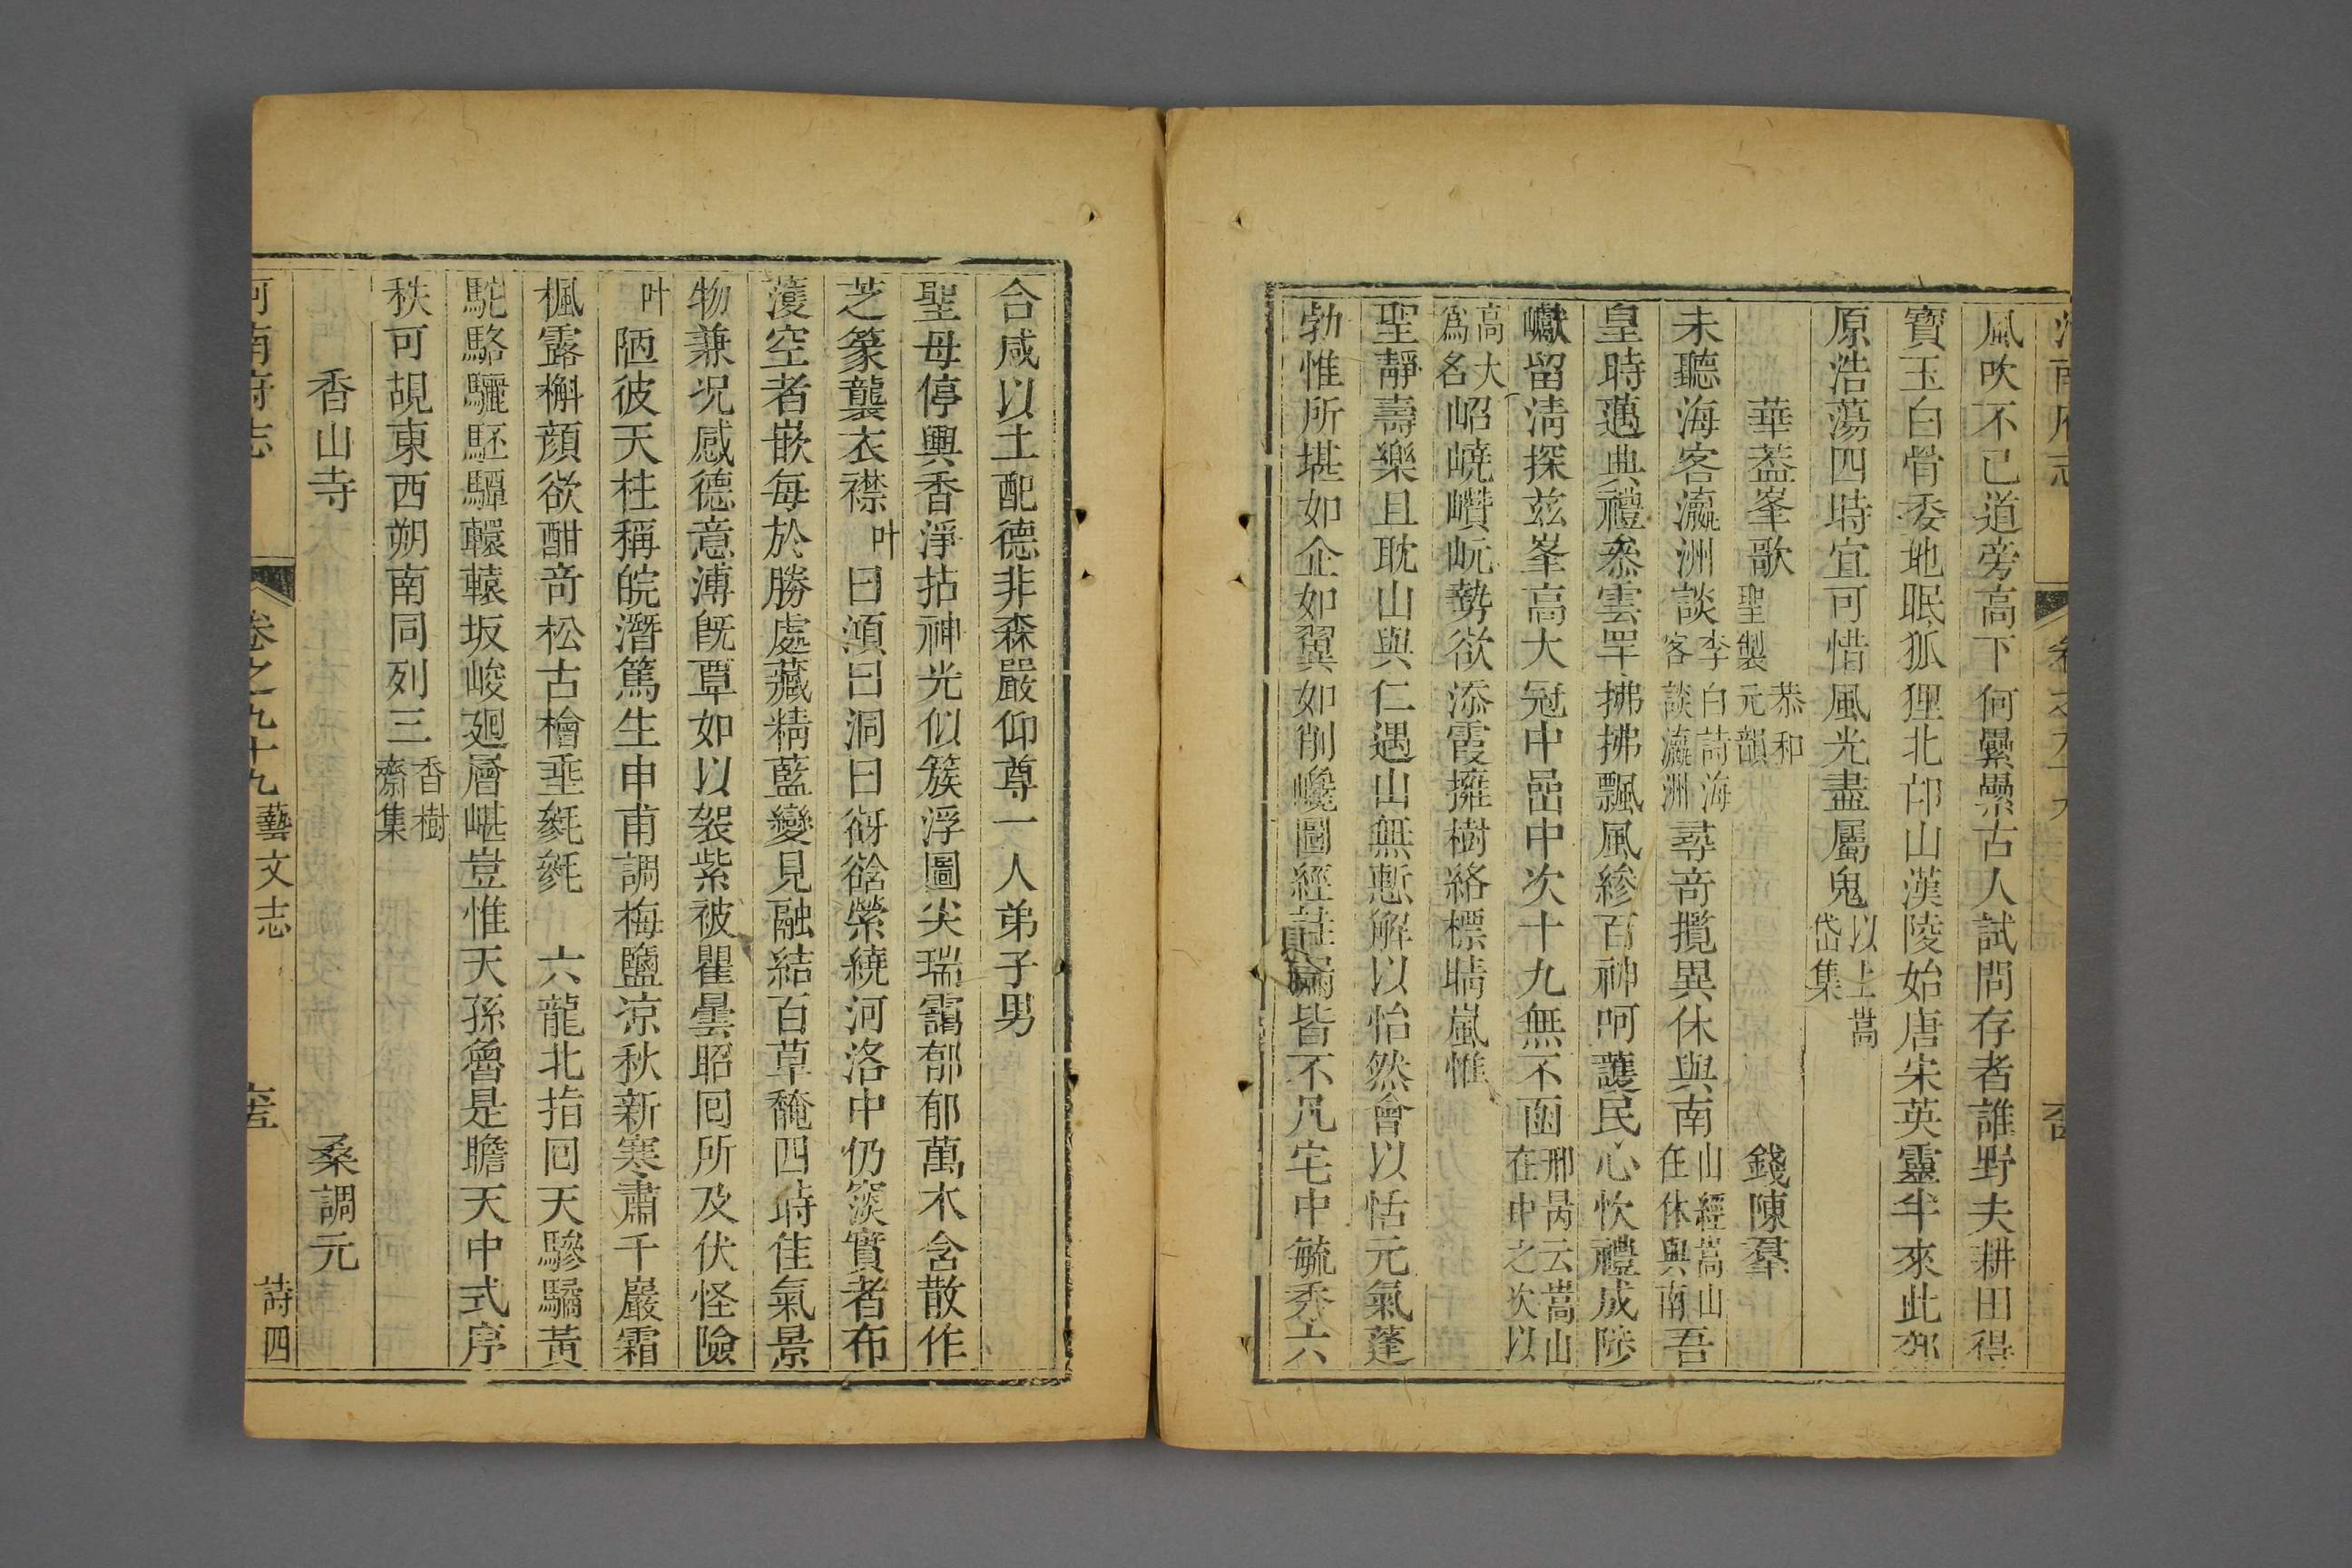 風吹不已道旁高下何纍纍古人試問存者誰野夫耕田得
寶玉白骨委地眠狐狸北邙山漢陵始唐宋英靈半來此郊
原浩蕩四時宜可惜風光盡屬鬼以上嵩岱集
華蓋峯歌聖製恭和元韻 錢陳羣
未聽海客瀛洲談李白詩海客談瀛洲尋奇攬異休與南山經嵩山在休輿南吾
皇時邁典禮叅雲罕拂拂飄風縿百神呵護民心忺禮成陟
巘留淸探茲峯高大冠中嵒中次十九無不函邢昺云嵩山在中之次以
高大爲名岹嶢巑岏勢欲添霞擁樹絡標晴嵐惟
聖靜壽樂且耽山與仁遇山無慙解以怡然會以恬元氣蓬
勃惟所堪如企如翼如削巉圖經 皆不凡宅中毓秀六
合咸以土配德非森嚴仰尊一人弟子男
聖母停輿香淨拈神光似簇浮圖尖瑞靄郁郁萬木含散作
芝篆襲衣襟叶曰澒曰洞曰谺谽縈繞河洛中仍窅實者布
濩空者嵌每於勝處藏精藍變見融結百草馣四時佳氣景
物兼况感德意溥既覃如以袈紫被瞿曇昭囘所及伏怪險
叶陋彼天柱稱皖潛篤生申甫調梅鹽凉秋新寒肅千巖霜
楓露槲顏欲酣奇松古檜垂毿毿 六龍北指囘天驂驈黃
駝駱驪駓驔轘轅坂峻廻層嵁豈惟天孫魯是瞻天中式序
秩可覘東西朔南同列三香樹齋集
香山寺 桑調元
河南府志 卷之九十九 藝文志 詩四